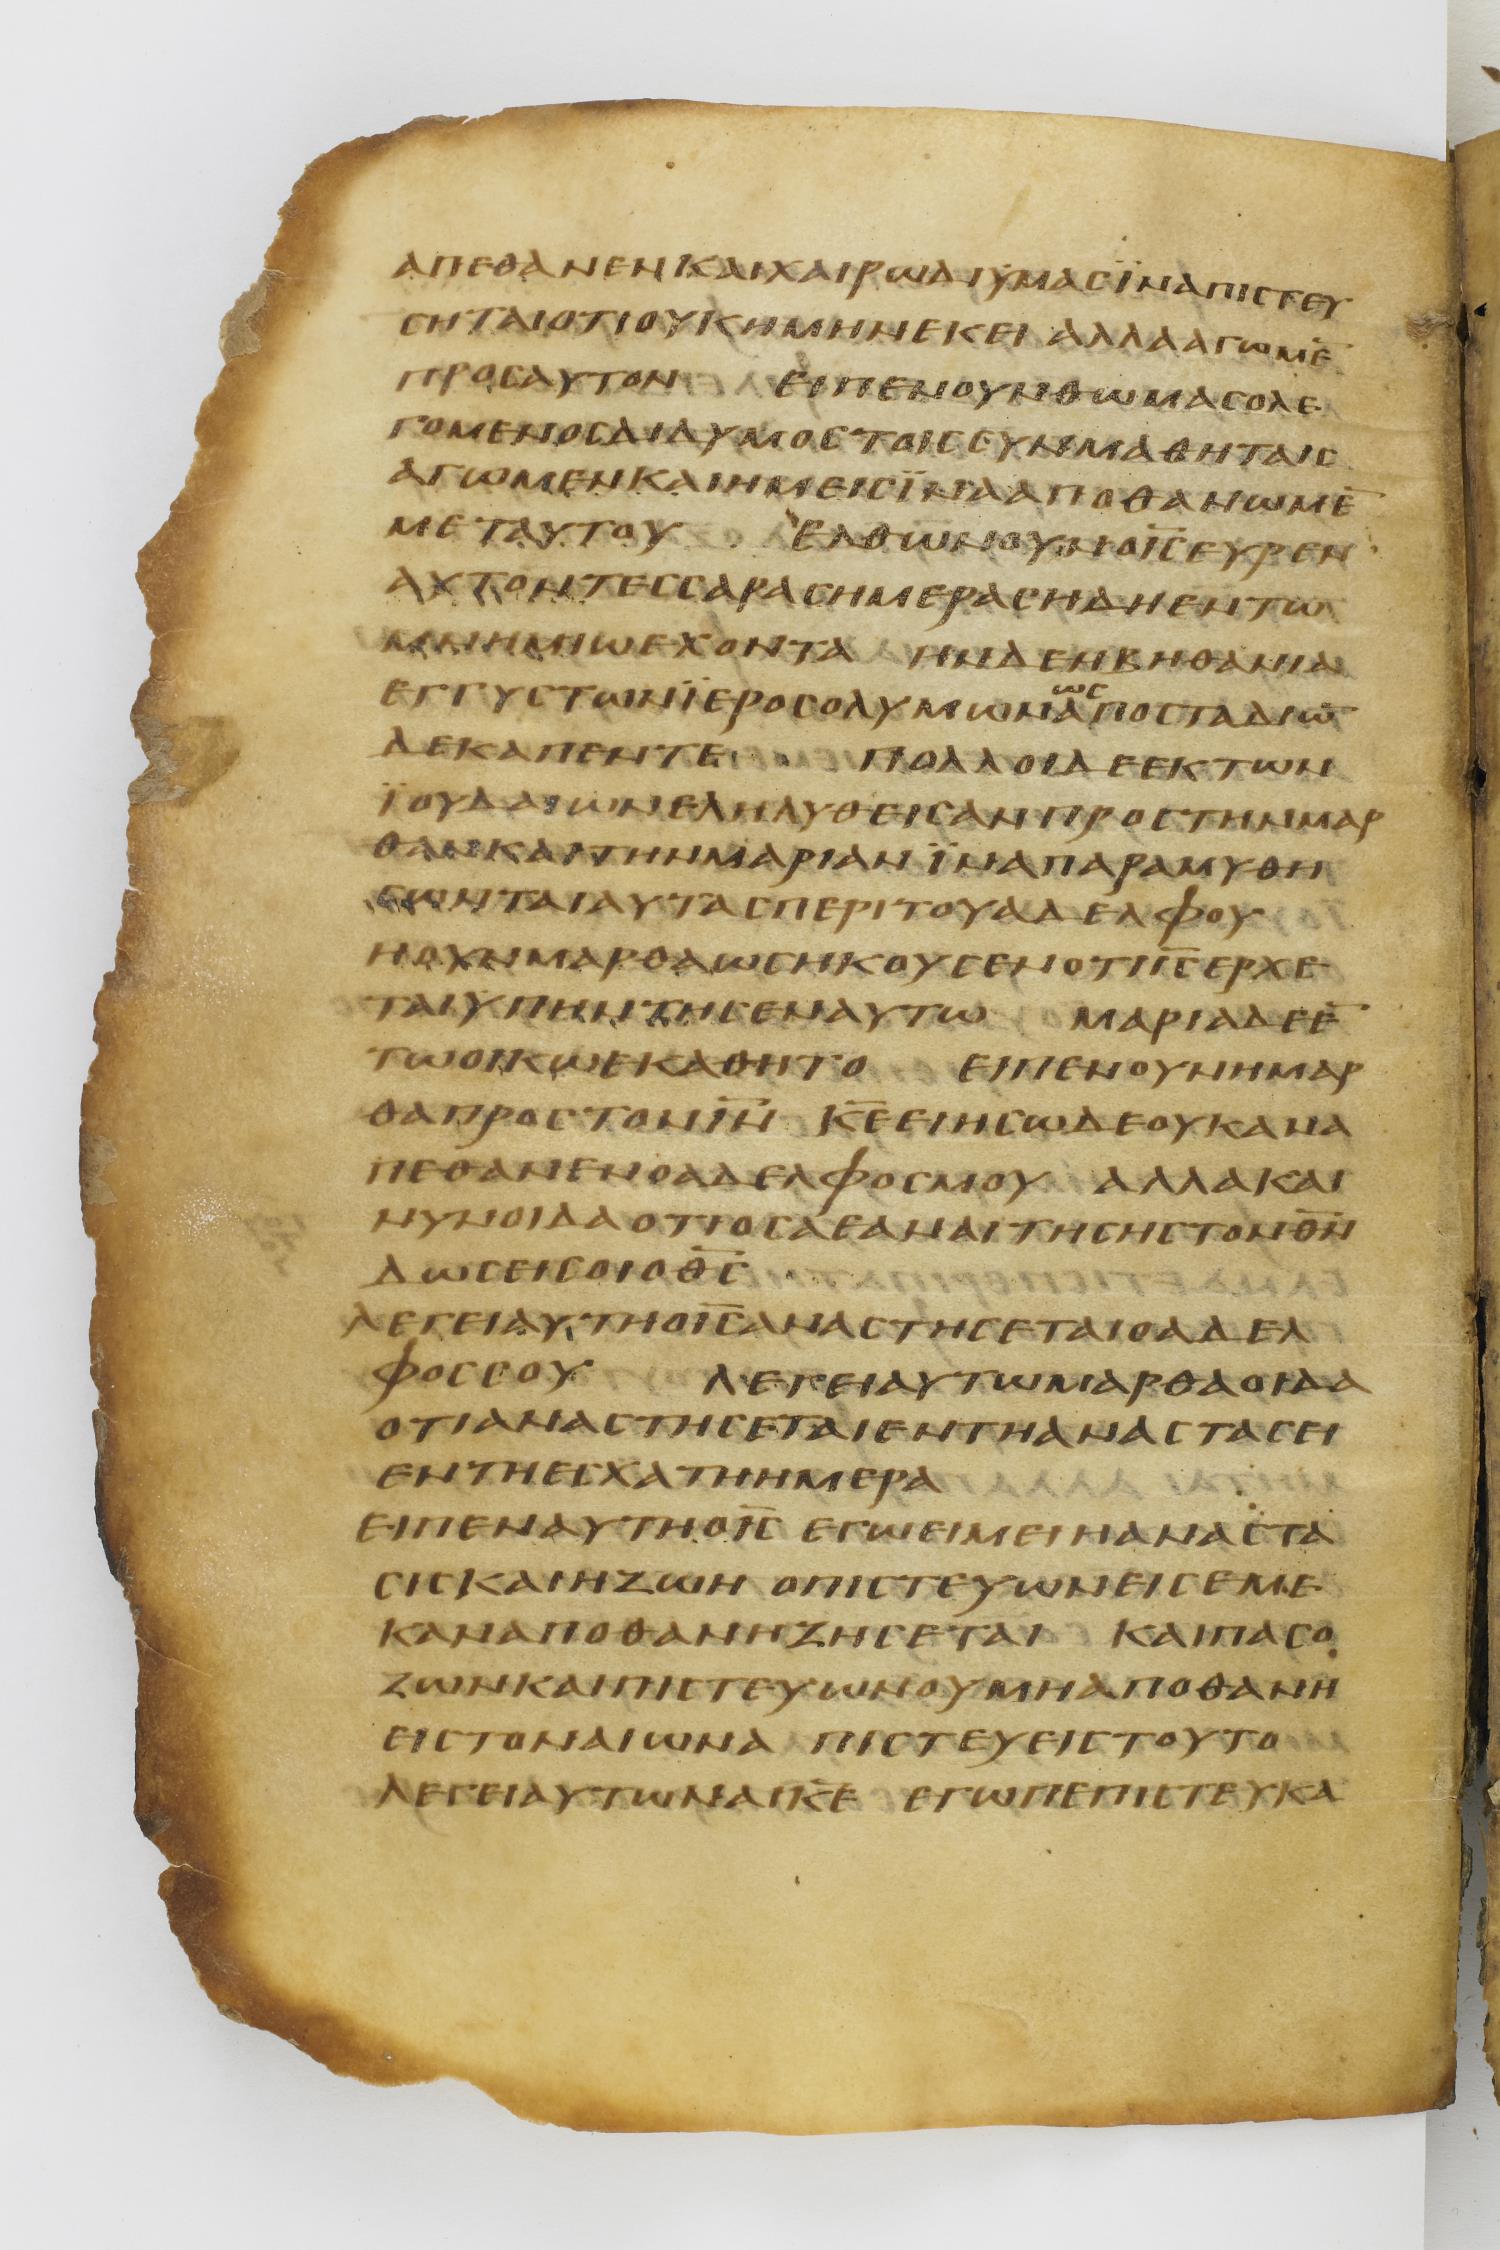 ΑΠΕΘΑΝΕΝΚΑΙΧΑΙΡΩΔΙΫΜΑΣΪΝΑΠΙΣΤΕΥ
ΣΗΤΑΙΟΤΙΟΥΚΗΜΗΝΕΚΕΙ ΑΛΛΑΑΓΩΜΕ̅
ΠΡΟΣΑΥΤΟΝ ΕΙΠΕΝΟΥΝΘΩΜΑΣΟΛΕ
ΓΟΜΕΝΟΣΔΙΔΥΜΟΣΤΟΙΣΣΥΝΜΑΘΗΤΑΙΣ
ΑΓΩΜΕΝΚΑΙΗΜΕΙΣΪΝΑΑΠΟΘΑΝΩΜΕ̅
ΜΕΤΑΥΤΟΥ ΕΛΘΩΝΟΥΝΟΙ̅Σ̅ΕΥΡΕΝ
ΑΥΤΟΝΤΕΣΣΑΡΑΣΗΜΕΡΑΣΗΔΗΕΝΤΩ
ΜΝΗΜΙΩΕΧΟΝΤΑ ΗΝΔΕΗΒΗΘΑΝΙΑ
ΕΓΓΥΣΤΩΝΪΕΡΟΣΟΛΥΜΩΝ`ΩΣ´ΑΠΟΣΤΑΔΙΩ̅
ΔΕΚΑΠΕΝΤΕ ΠΟΛΛΟΙΔΕΕΚΤΩΝ
ΪΟΥΔΑΙΩΝΕΛΗΛΥΘΕΙΣΑΝΠΡΟΣΤΗΝΜΑΡ
ΘΑΝΚΑΙΤΗΝΜΑΡΙΑΝΪΝΑΠΑΡΑΜΥΘΗ
ΣΩΝΤΑΙΑΥΤΑΣΠΕΡΙΤΟΥΑΔΕΛΦΟΥ
ΗΟΥΝΜΑΡΘΑΩΣΗΚΟΥΣΕΝΟΤΙΙ̅Σ̅ΕΡΧΕ
ΤΑΙΫΠΗΝΤΗΣΕΝΑΥΤΩ ΜΑΡΙΑΔΕΕ̅
ΤΩΟΙΚΩΕΚΑΘΗΤΟ ΕΙΠΕΝΟΥΝΗΜΑΡ
ΘΑΠΡΟΣΤΟΝΙ̅Ν̅ Κ̅Ε̅ΕΙΗΣΩΔΕΟΥΚΑΝΑ
ΠΕΘΑΝΕΝΟΑΔΕΛΦΟΣΜΟΥ ΑΛΛΑΚΑΙ
ΝΥΝΟΙΔΑΟΤΙΟΣΑΕΑΝΑΙΤΗΣΗΣΤΟΝΘ̅Ν̅
ΔΩΣΕΙΣΟΙΟΘ̅Σ̅
ΛΕΓΕΙΑΥΤΗΟΙ̅Σ̅ΑΝΑΣΤΗΣΕΤΑΙΟΑΔΕΛ
ΦΟΣΣΟΥ ΛΕΓΕΙΑΥΤΩΜΑΡΘΑΟΙΔΑ
ΟΤΙΑΝΑΣΤΗΣΕΤΑΙΕΝΤΗΑΝΑΣΤΑΣΕΙ
ΕΝΤΗΕΣΧΑΤΗΗΜΕΡΑ
ΕΙΠΕΝΑΥΤΗΟΙ̅Σ̅ ΕΓΩΕΙΜΕΙΗΑΝΑΣΤΑ
ΣΙΣΚΑΙΗΖΩΗ ΟΠΙΣΤΕΥΩΝΕΙΣΕΜΕ
ΚΑΝΑΠΟΘΑΝΗΖΗΣΕΤΑΙ ΚΑΙΠΑΣΟ
ΖΩΝΚΑΙΠΙΣΤΕΥΩΝΟΥΜΗΑΠΟΘΑΝΗ
ΕΙΣΤΟΝΑΙΩΝΑ ΠΙΣΤΕΥΕΙΣΤΟΥΤΟ
ΛΕΓΕΙΑΥΤΩΝΑΙΚ̅Ε̅ ΕΓΩΠΕΠΙΣΤΕΥΚΑ